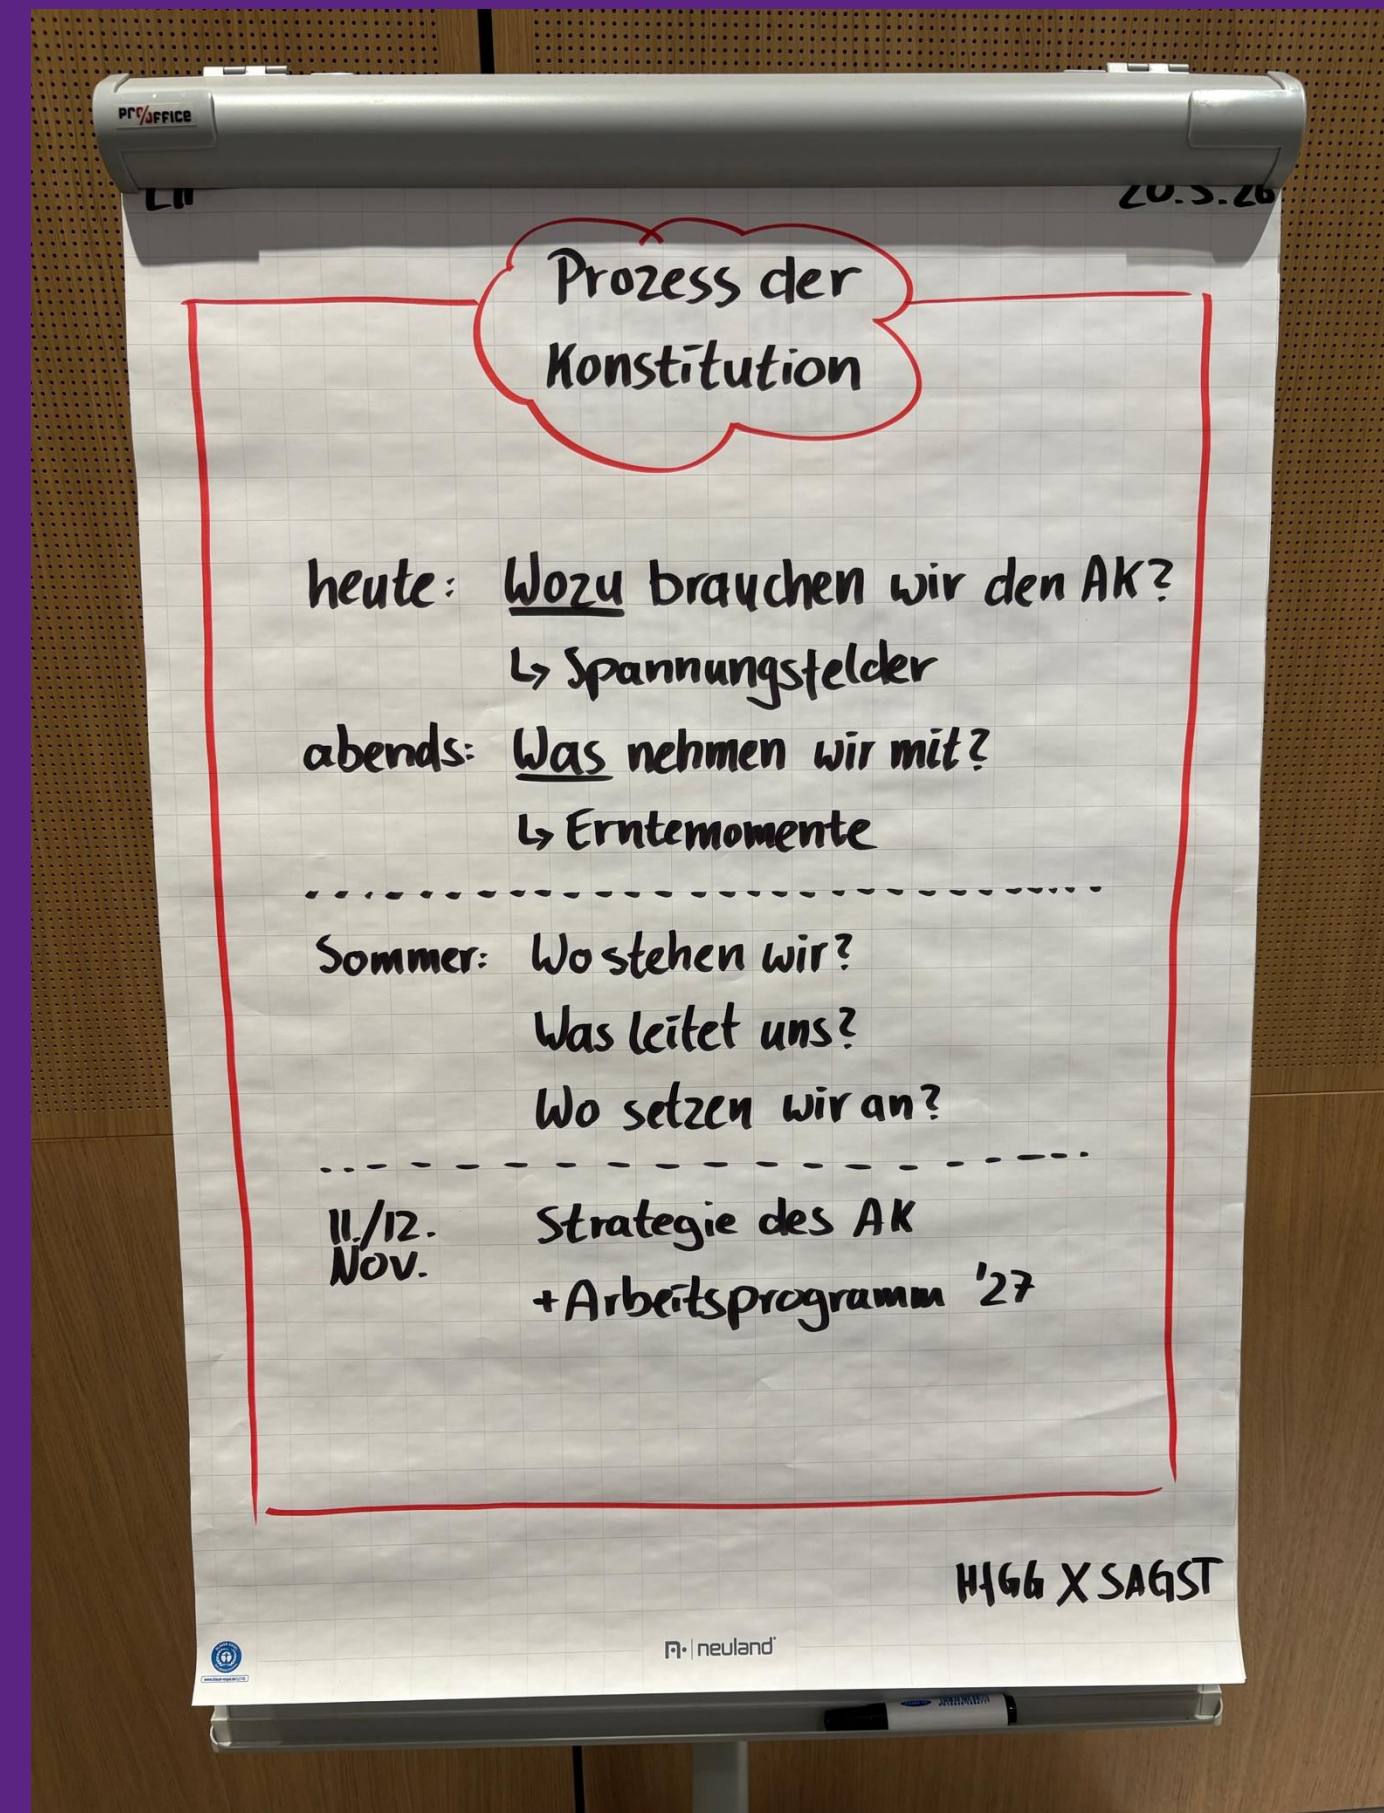 pro/office
20.5.26
Prozess der
Konstitution
heute: Wozu brauchen wir den AK?
↳ Spannungsfelder
abends: Was nehmen wir mit?
↳ Erntemomente
Sommer: Wo stehen wir?
Was leitet uns?
Wo setzen wir an?
11./12. Nov. Strategie des AK
+ Arbeitsprogramm '27
X SAGST
neuland